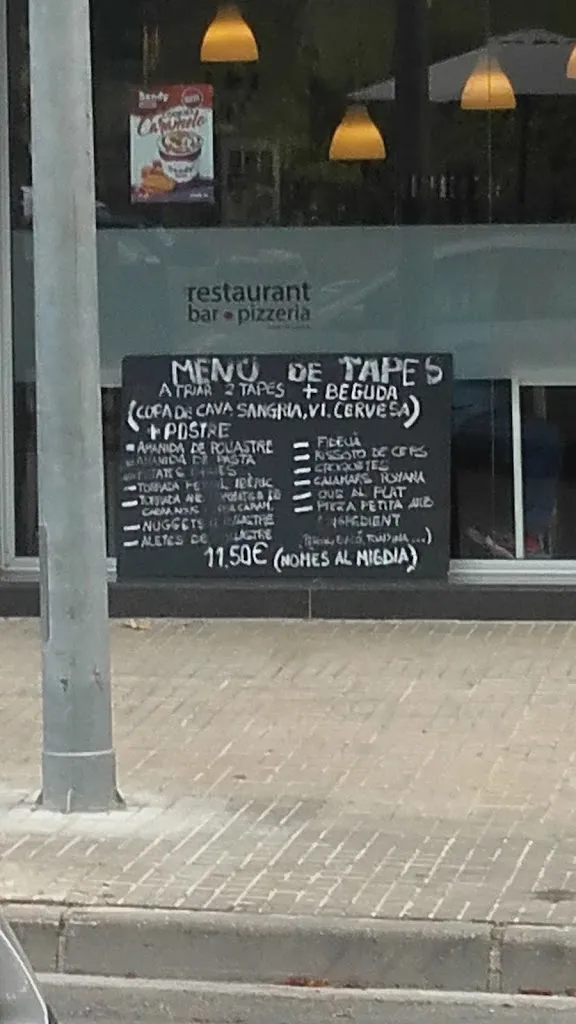 Caramelo
restaurant
bar • pizzeria
MENÚ DE TAPES
A TRIAR 2 TAPES + BEGUDA
(COPA DE CAVA SANGRIA, VI, CERVESA)
+ POSTRE
- AMANIDA DE POLLASTRE
AMANIDA DE PASTA
- TORRADA IBÈRIC
- TORRADA AMB
- NUGGETS
- ALETES DE
- FIDEUÀ
- RISSOTO DE CEPS
- CROQUETES
- CALAMARS ROMANA
- OUS AL PLAT
- PIZZA PETITA AMB
INGREDIENT
11,50€ (NOMES AL MIGDIA)